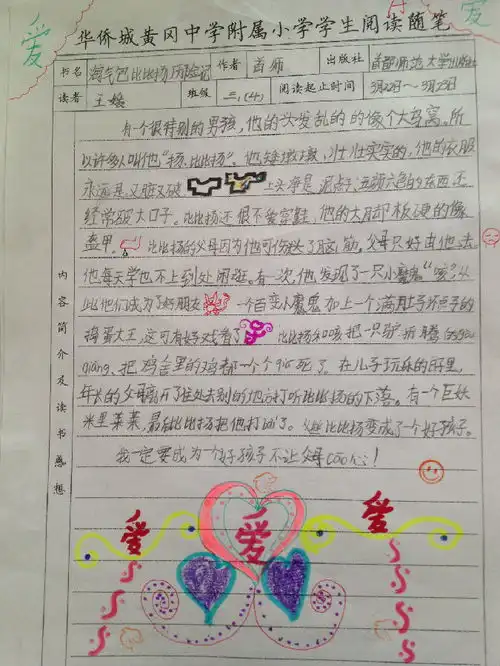 爱
华侨城黄冈中学附属小学学生阅读随笔
书名 淘气包比比扬历险记 作者 首师 出版社 首都师范大学出版社
读者 王媛 班级 三,(4) 阅读起止时间 3月22日~3月23日
有一个很特别的男孩,他的头发乱的的像个大鸟窝。所
以许多人叫他“扬.比比扬”。他矮墩墩,壮壮实实的,他的衣服
永远是又脏又破 上头净是泥点子,五颜六色的东西,还
经常破大口子。比比扬还很不爱穿鞋,他的大脚板硬的像
盔甲。比比扬的父母因为他可伤透了脑筋,父母只好由他去
他每天学也不上到处闲逛。有一次,他发现了一只小魔鬼“嗝”从
此他们成为了好朋友 一个百变小魔鬼加上一个满肚子坏点子的
捣蛋大王,这可有好戏看了 比比扬和嗝把一只驴折腾的
qiang,把鸡舍里的鸡都一个个 死了。在儿子玩乐的日子里,
年长的父母离开了住处去别的地方打听比比扬的下落。有一个巨妖
米里莱莱,最后比比扬把他打 了。 比比扬变成了一个好孩子。
我一定要成为一个好孩子不让父母 心!
内容简介及读书感想
爱
爱
爱